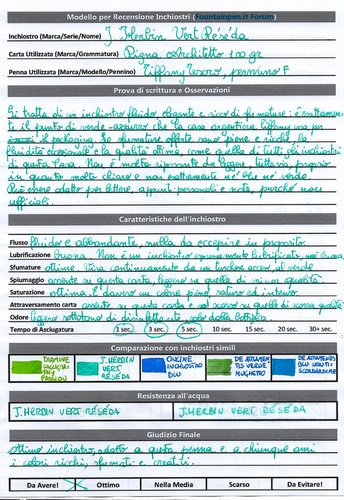 Modello per Recensione Inchiostri (Fountainpen.it Forum)
Inchiostro (Marca/Serie/Nome) J. Herbin Vert Réséda
Carta Utilizzata (Marca/Grammatura) Pigna Architetto 100 gr
Penna Utilizzata (Marca/Modello/Pennino) Tiffany Tesoro, pennino F
Prova di scrittura e Osservazioni
Si tratta di un inchiostro fluido, elegante e ricco di sfumature: è esattamen-
te il punto di verde-azzurro che la casa argentiera Tiffany usa per
il packaging. Le sfumature offerte sono piene e ricche, la
fluidità eccezionale e la qualità ottima come quella di tutti gli inchiostri
di questa Casa. Non è molto riposante da leggere, tuttavia, proprio
in quanto molto chiaro e non esattamente né blu né verde.
Può essere adatto per lettere, appunti personali e note, purché non
ufficiali.
Caratteristiche dell'inchiostro
Flusso fluido e abbondante, nulla da eccepire in proposito.
Lubrificazione buona. Non è un inchiostro
Sfumature ottime. Vira continuamente da un turchese al verde
Spiumaggio assente su questa carta, leggero su quella di minor qualità.
Saturazione ottima. È davvero un colore pieno, saturo ed intenso
Attraversamento carta assente su questa carta e sul scarso su quelle di scarsa qualità
Odore leggero sottotono di disinfettante, solo dalla bottiglia
Tempo di Asciugatura 1 sec. 3 sec. 5 sec. 10 sec. 15 sec. 20 sec. 30+ sec.
Comparazione con inchiostri simili
DIAMINE
J. HERBIN VERT RÉSÉDA
ONLINE INCHIOSTRO BLU
DE ATRAMENTIS VERDE MUGHETTO
DE ATRAMENTIS BLU NONTI-SCORDARDIME
Resistenza all'acqua
J. HERBIN VERT RÉSÉDA J. HERBIN VERT RÉSÉDA
Giudizio Finale
Ottimo inchiostro, adatto a questa penna e a chiunque ami
i colori ricchi, sfumati e creativi.
Da Avere! Ottimo Nella Media Scarso Da Evitare!